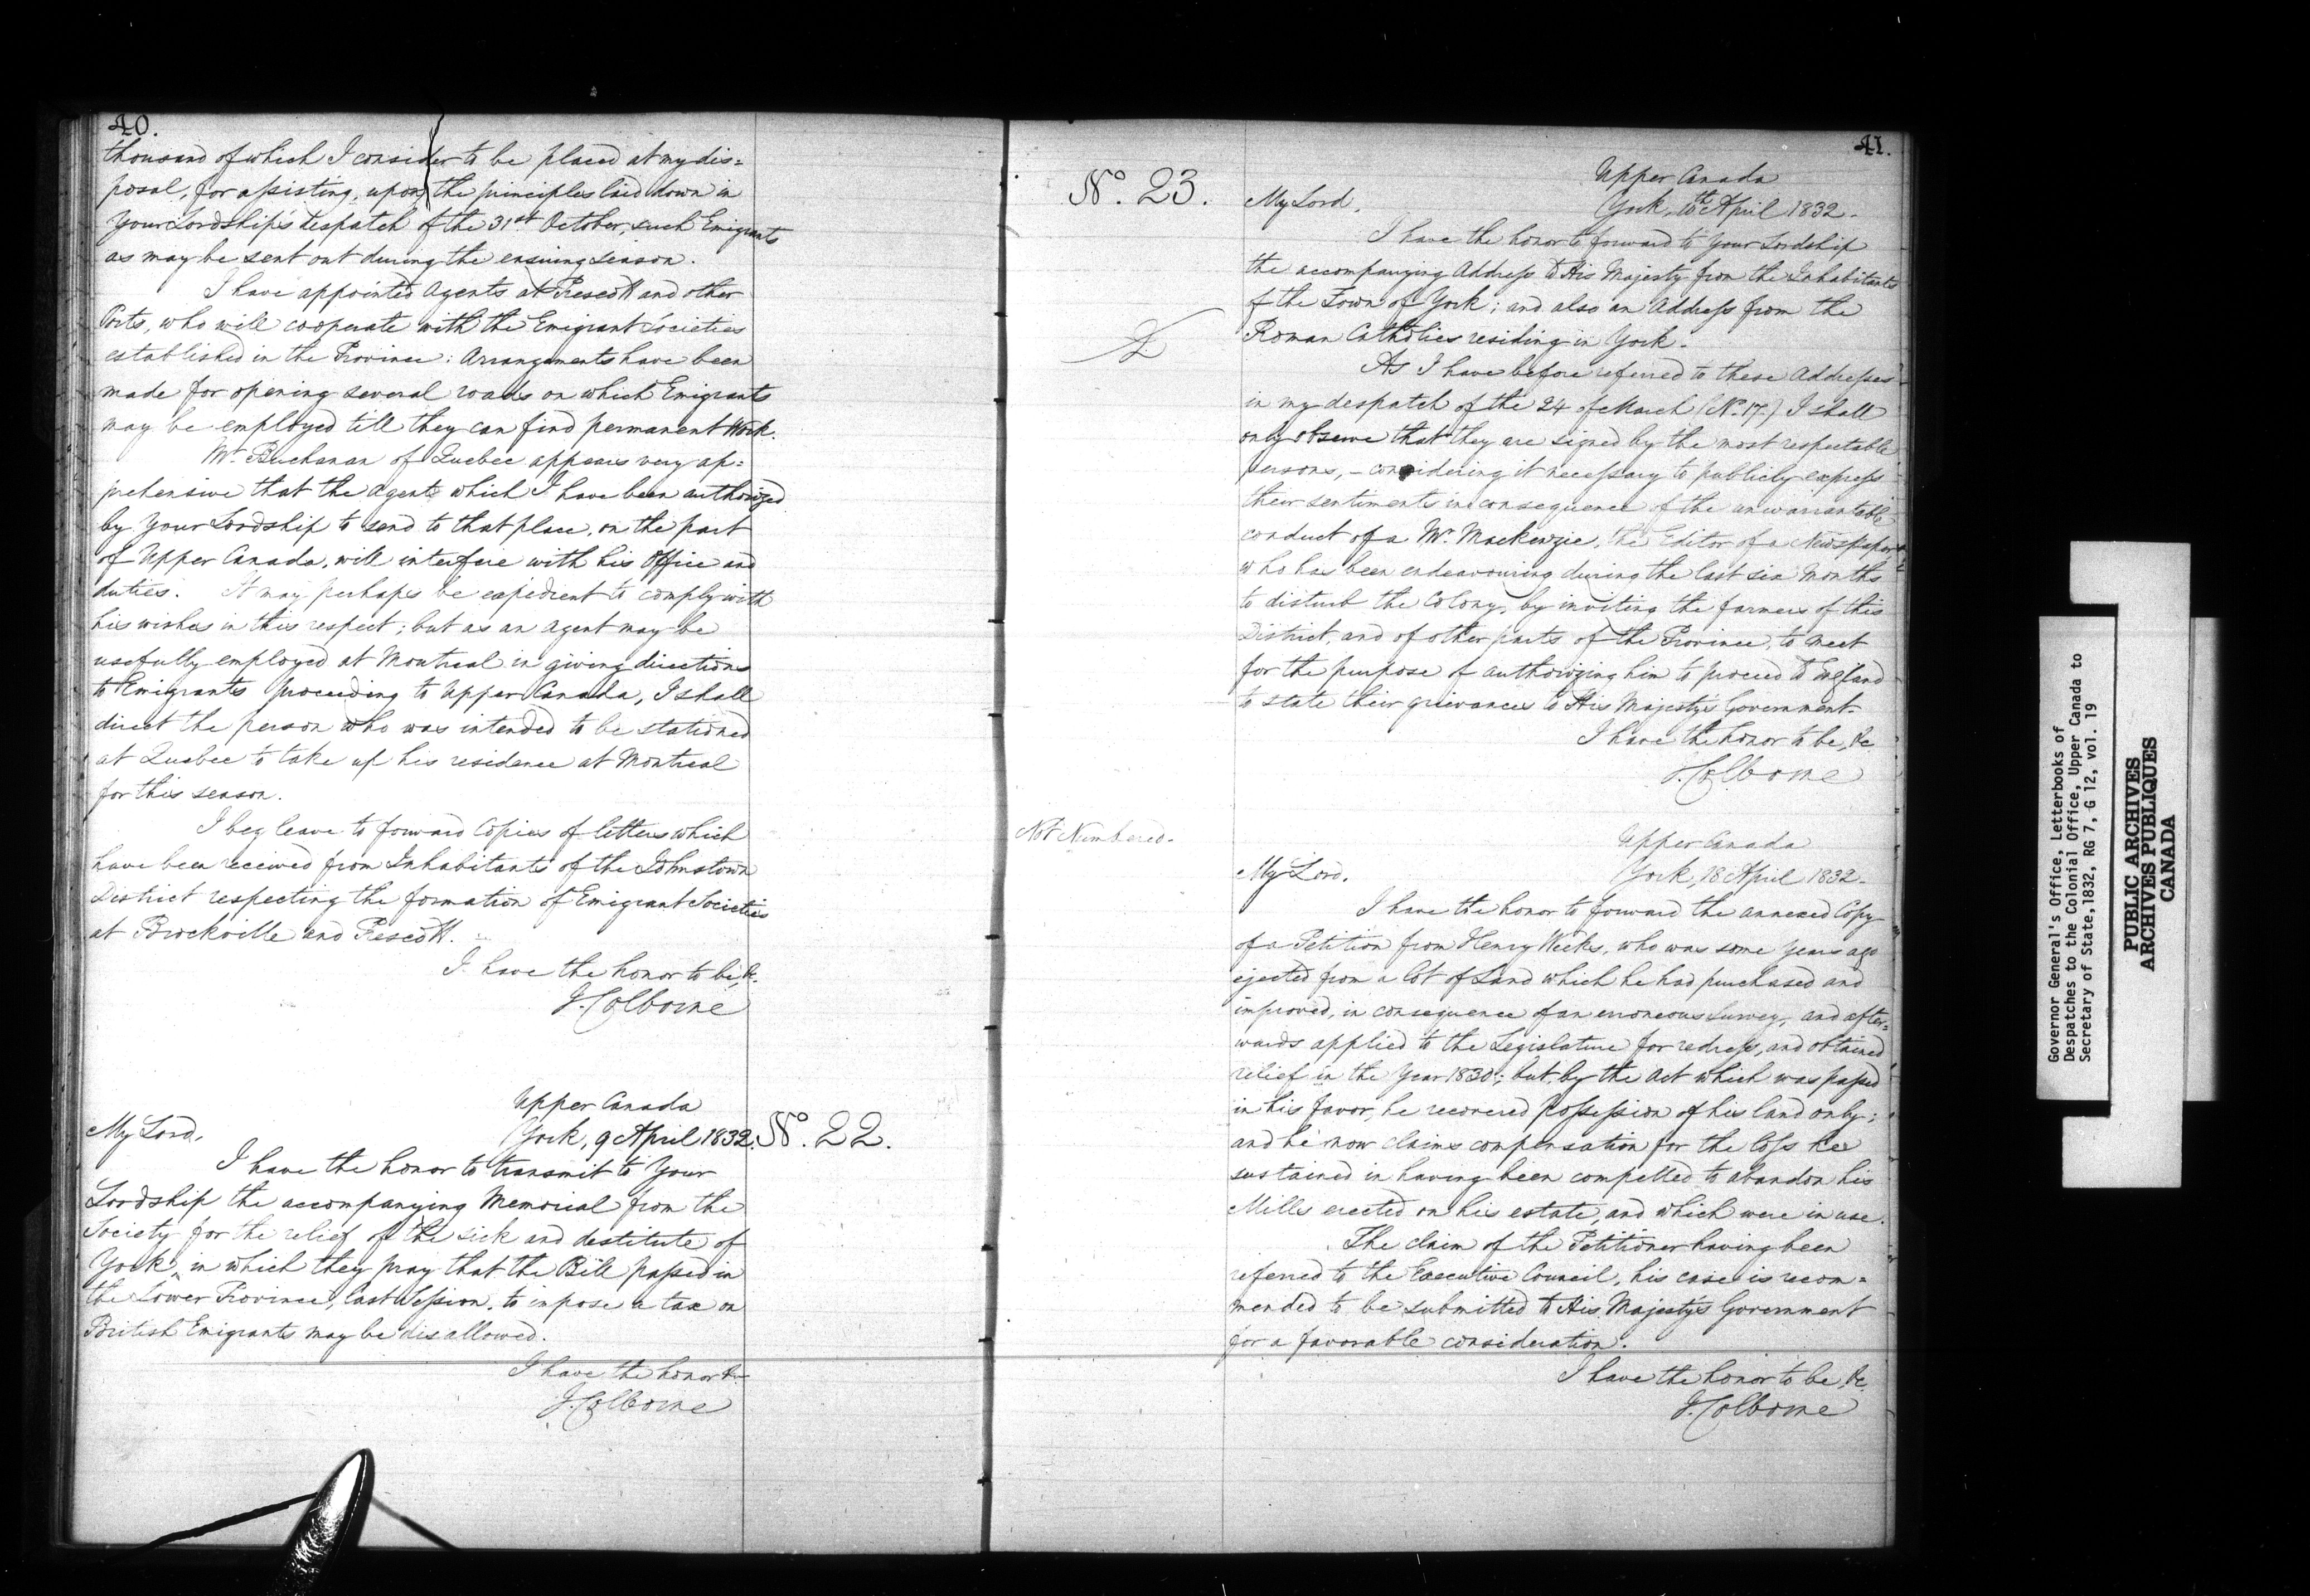 40.
thousand of which I consider to be placed at my dis=
posal, for assisting, upon the principles laid down in
Your Lordship's despatch of the 31st October, such Emigrants
as may be sent out during the ensuing season.
I have appointed Agents at Prescott and other
Ports, who will cooperate with the Emigrant Societies
established in the Province: Arrangements have been
made for opening several roads on which Emigrants
may be employed till they can find permanent work.
Mr. Buchanan of Quebec appears very ap=
prehensive that the agents which I have been authorized
by Your Lordship to send to that place, on the part
of Upper Canada, will interfere with his Office and
duties. It may perhaps be expedient to comply with
his wishes in this respect; but as an agent may be
usefully employed at Montreal in giving directions
to Emigrants proceeding to Upper Canada, I shall
direct the person who was intended to be stationed
at Quebec to take up his residence at Montreal
for this season.
I beg leave to forward Copies of letters which
have been received from Inhabitants of the Johnstown
District respecting the formation of Emigrant Societies
at Brockville and Prescott.
I have the honor to be, &c.
J. Colborne
Upper Canada
My Lord, York, 9 April 1832. No. 22.
I have the honor to transmit to Your
Lordship the accompanying Memorial from the
Society for the relief of the sick and destitute of
York, in which they pray that the Bill passed in
the Lower Province, last Session, to impose a tax on
British Emigrants may be disallowed.
I have the honor &c
J. Colborne
41.
Upper Canada
No. 23. My Lord, York, 10th April 1832.
I have the honor to forward to Your Lordship
the accompanying Address to His Majesty from the Inhabitants
of the Town of York; and also an Address from the
Roman Catholics residing in York.
As I have before referred to these Addresses
in my despatch of the 24 of March (No. 17.) I shall
only observe that they are signed by the most respectable
persons, – considering it necessary to publicly express
their sentiments in consequence of the unwarrantable
conduct of a Mr. Mackenzie, the Editor of a Newspaper,
who has been endeavouring during the last six Months
to disturb the Colony, by inviting the farmers of this
District, and of other parts of the Province, to meet
for the purpose of authorizing him to proceed to England
to state their grievances to His Majesty's Government.
I have the honor to be, &c
J. Colborne
Not Numbered.
Upper Canada
My Lord. York, 18 April 1832.
I have the honor to forward the annexed Copy
of a Petition from Henry Weeks, who was some years ago
ejected from a lot of Land which he had purchased and
improved, in consequence of an erroneous Survey, and after=
wards applied to the Legislature for redress, and obtained
relief in the Year 1830; but, by the Act which was passed
in his favor, he recovered possession of his land only;
and he now claims compensation for the loss he
sustained in having been compelled to abandon his
Mills erected on his estate, and which were in use.
The claim of the Petitioner having been
referred to the Executive Council, his case is recom=
mended to be submitted to His Majesty's Government
for a favorable consideration.
I have the honor to be, &c
J. Colborne
Governor General's Office, Letterbooks of
Despatches to the Colonial Office, Upper Canada to
Secretary of State, 1832, RG 7, G 12, vol. 19
PUBLIC ARCHIVES
ARCHIVES PUBLIQUES
CANADA